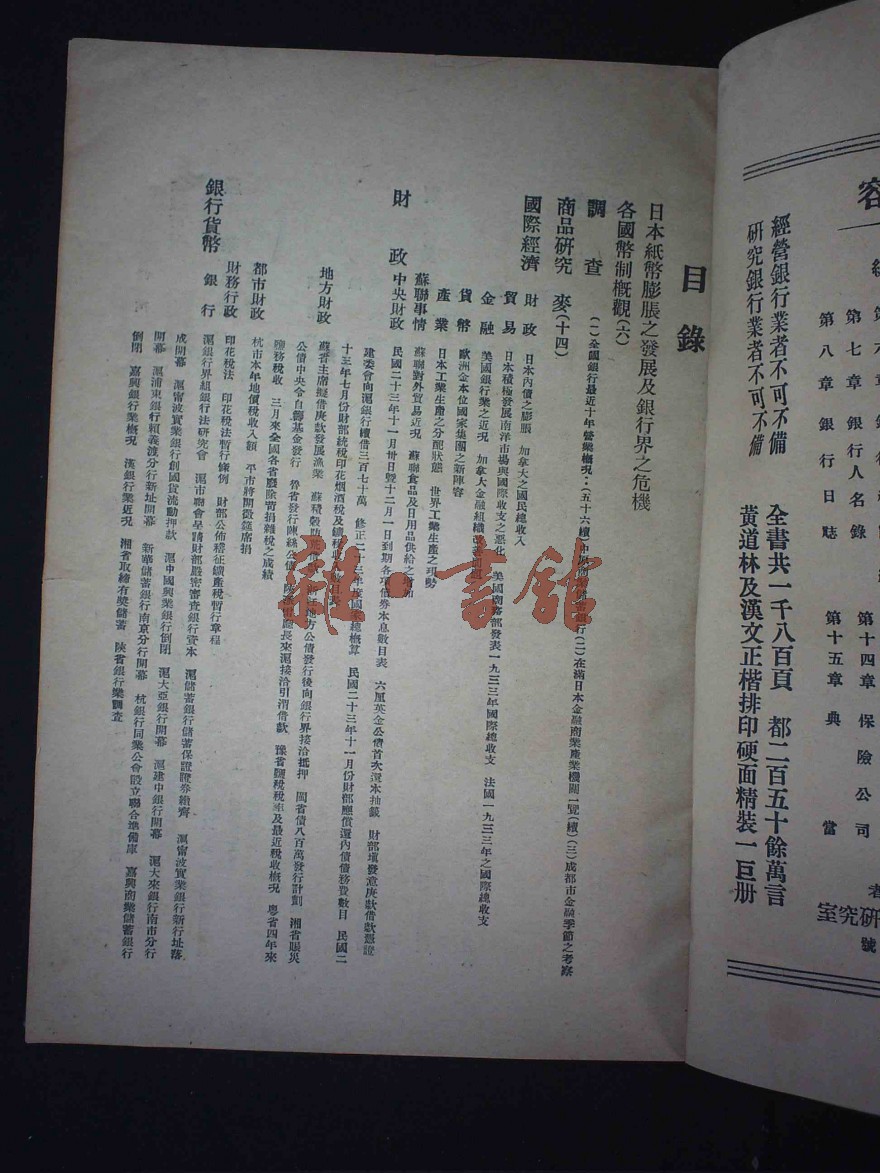 容
經營銀行業者不可不備
研究銀行業者不可不備
第七章 銀行人名錄
第八章 銀行日誌
第十四章 保險公司
第十五章 典當
全書共一千八百頁 都二百五十餘萬言
黃道林及漢文正楷排印硬面精裝一巨册
研究室
號
目錄
日本紙幣膨脹之發展及銀行界之危機
各國幣制概觀(六)
調查 (一)全國銀行最近十年營業概況··(五十六續)中原商業儲蓄銀行(二)在滿日本金融商業產業機關一覽(續)(三)成都市金融季節之考察
商品研究 麥(十四)
國際經濟
財政 日本內債之膨脹 加拿大之國民總收入
貿易 日本積極發展南洋市場與國際收支之惡化 美國商務部發表一九三三年國際總收支 法國一九三三年之國際總收支
金融 美國銀行業之近況 加拿大金融組織
貨幣 歐洲金本位國家集團之新陣容
產業 日本工業生產之分配狀態 世界工業生產之現勢
蘇聯事情 蘇聯對外貿易近況 蘇聯食品及日用品供給之
財政
中央財政 民國二十三年十一月卅日暨十二月一日到期各項債券本息數目表 六厘英金公債首次還本抽籤 財部壇發意庚款借款憑證
建委會向滬銀行續借三百七十萬 修正二十三年度國家總概算 民國二十三年十一月份財部應償還內債債務費數目 民國二
十三年七月份財部統稅印花烟酒稅及
地方財政 蘇省主席擬借庚款發展漁業 蘇積穀 地方公債發行後向銀行界接洽抵押 閩省債八百萬發行計劃 湘省賑災
公債中央令自籌基金發行 魯省發行 廳長來滬接洽引渭借款 豫省鹽稅稅率及最近稅收概況 粵省四年來
鹽務稅收 三月來全國各省廢除苛捐雜稅之成績
都市財政 杭市本年地價稅收入額 平市將開徵筵席捐
財務行政 印花稅法 印花稅法暫行條例 財部公佈稽征鑛產稅暫行章程
銀行貨幣
銀行 滬銀行界組銀行法研究會 滬市聯會呈請財部嚴密審查銀行資本 滬儲蓄銀行儲蓄保證證券繳齊 滬甯波實業銀行新行址落
成開幕 滬甯波實業銀行創國貨流動押款 滬中國興業銀行倒閉 滬大亞銀行開幕 滬建中銀行開幕 滬大來銀行南市分行
開幕 滬浦東銀行賴義渡分行新址開幕 新華儲蓄銀行南京分行開幕 杭銀行同業公會設立聯合準備庫 嘉興商業儲蓄銀行
倒閉 嘉興銀行業概況 漢銀行業近況 湘省取締有奬儲蓄 陝省銀行業調查
雜·書館